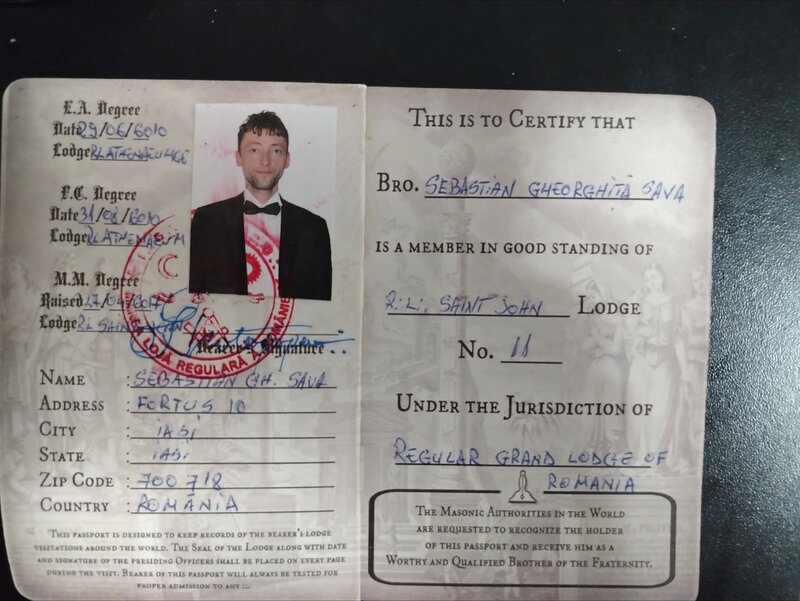 E.A. Degree
Date 29/06/6010
Lodge RL ATHENAEUM
F.C. Degree
Date 31/08/6010
Lodge RL ATHENAEUM
M.M. Degree
Raised 27/04/
Lodge RL SAINT
Bearer's Signature
LOJĂ REGULARĂ
NAME : SEBASTIAN GH. SAVA
ADDRESS : FORTUS 10
CITY : IASI
STATE : IASI
ZIP CODE : 700 718
COUNTRY : ROMÂNIA
THIS PASSPORT IS DESIGNED TO KEEP RECORDS OF THE BEARER'S LODGE
VISITATIONS AROUND THE WORLD. THE SEAL OF THE LODGE ALONG WITH DATE
AND SIGNATURE OF THE PRESIDING OFFICERS SHALL BE PLACED ON EVERY PAGE
DURING THE VISIT. BEARER OF THIS PASSPORT WILL ALWAYS BE TESTED FOR
PROPER ADMISSION TO ANY
THIS IS TO CERTIFY THAT
BRO. SEBASTIAN GHEORGHITĂ SAVA
IS A MEMBER IN GOOD STANDING OF
R.L. SAINT JOHN LODGE
NO. 11
UNDER THE JURISDICTION OF
REGULAR GRAND LODGE OF
ROMANIA
THE MASONIC AUTHORITIES IN THE WORLD
ARE REQUESTED TO RECOGNIZE THE HOLDER
OF THIS PASSPORT AND RECEIVE HIM AS A
WORTHY AND QUALIFIED BROTHER OF THE FRATERNITY.